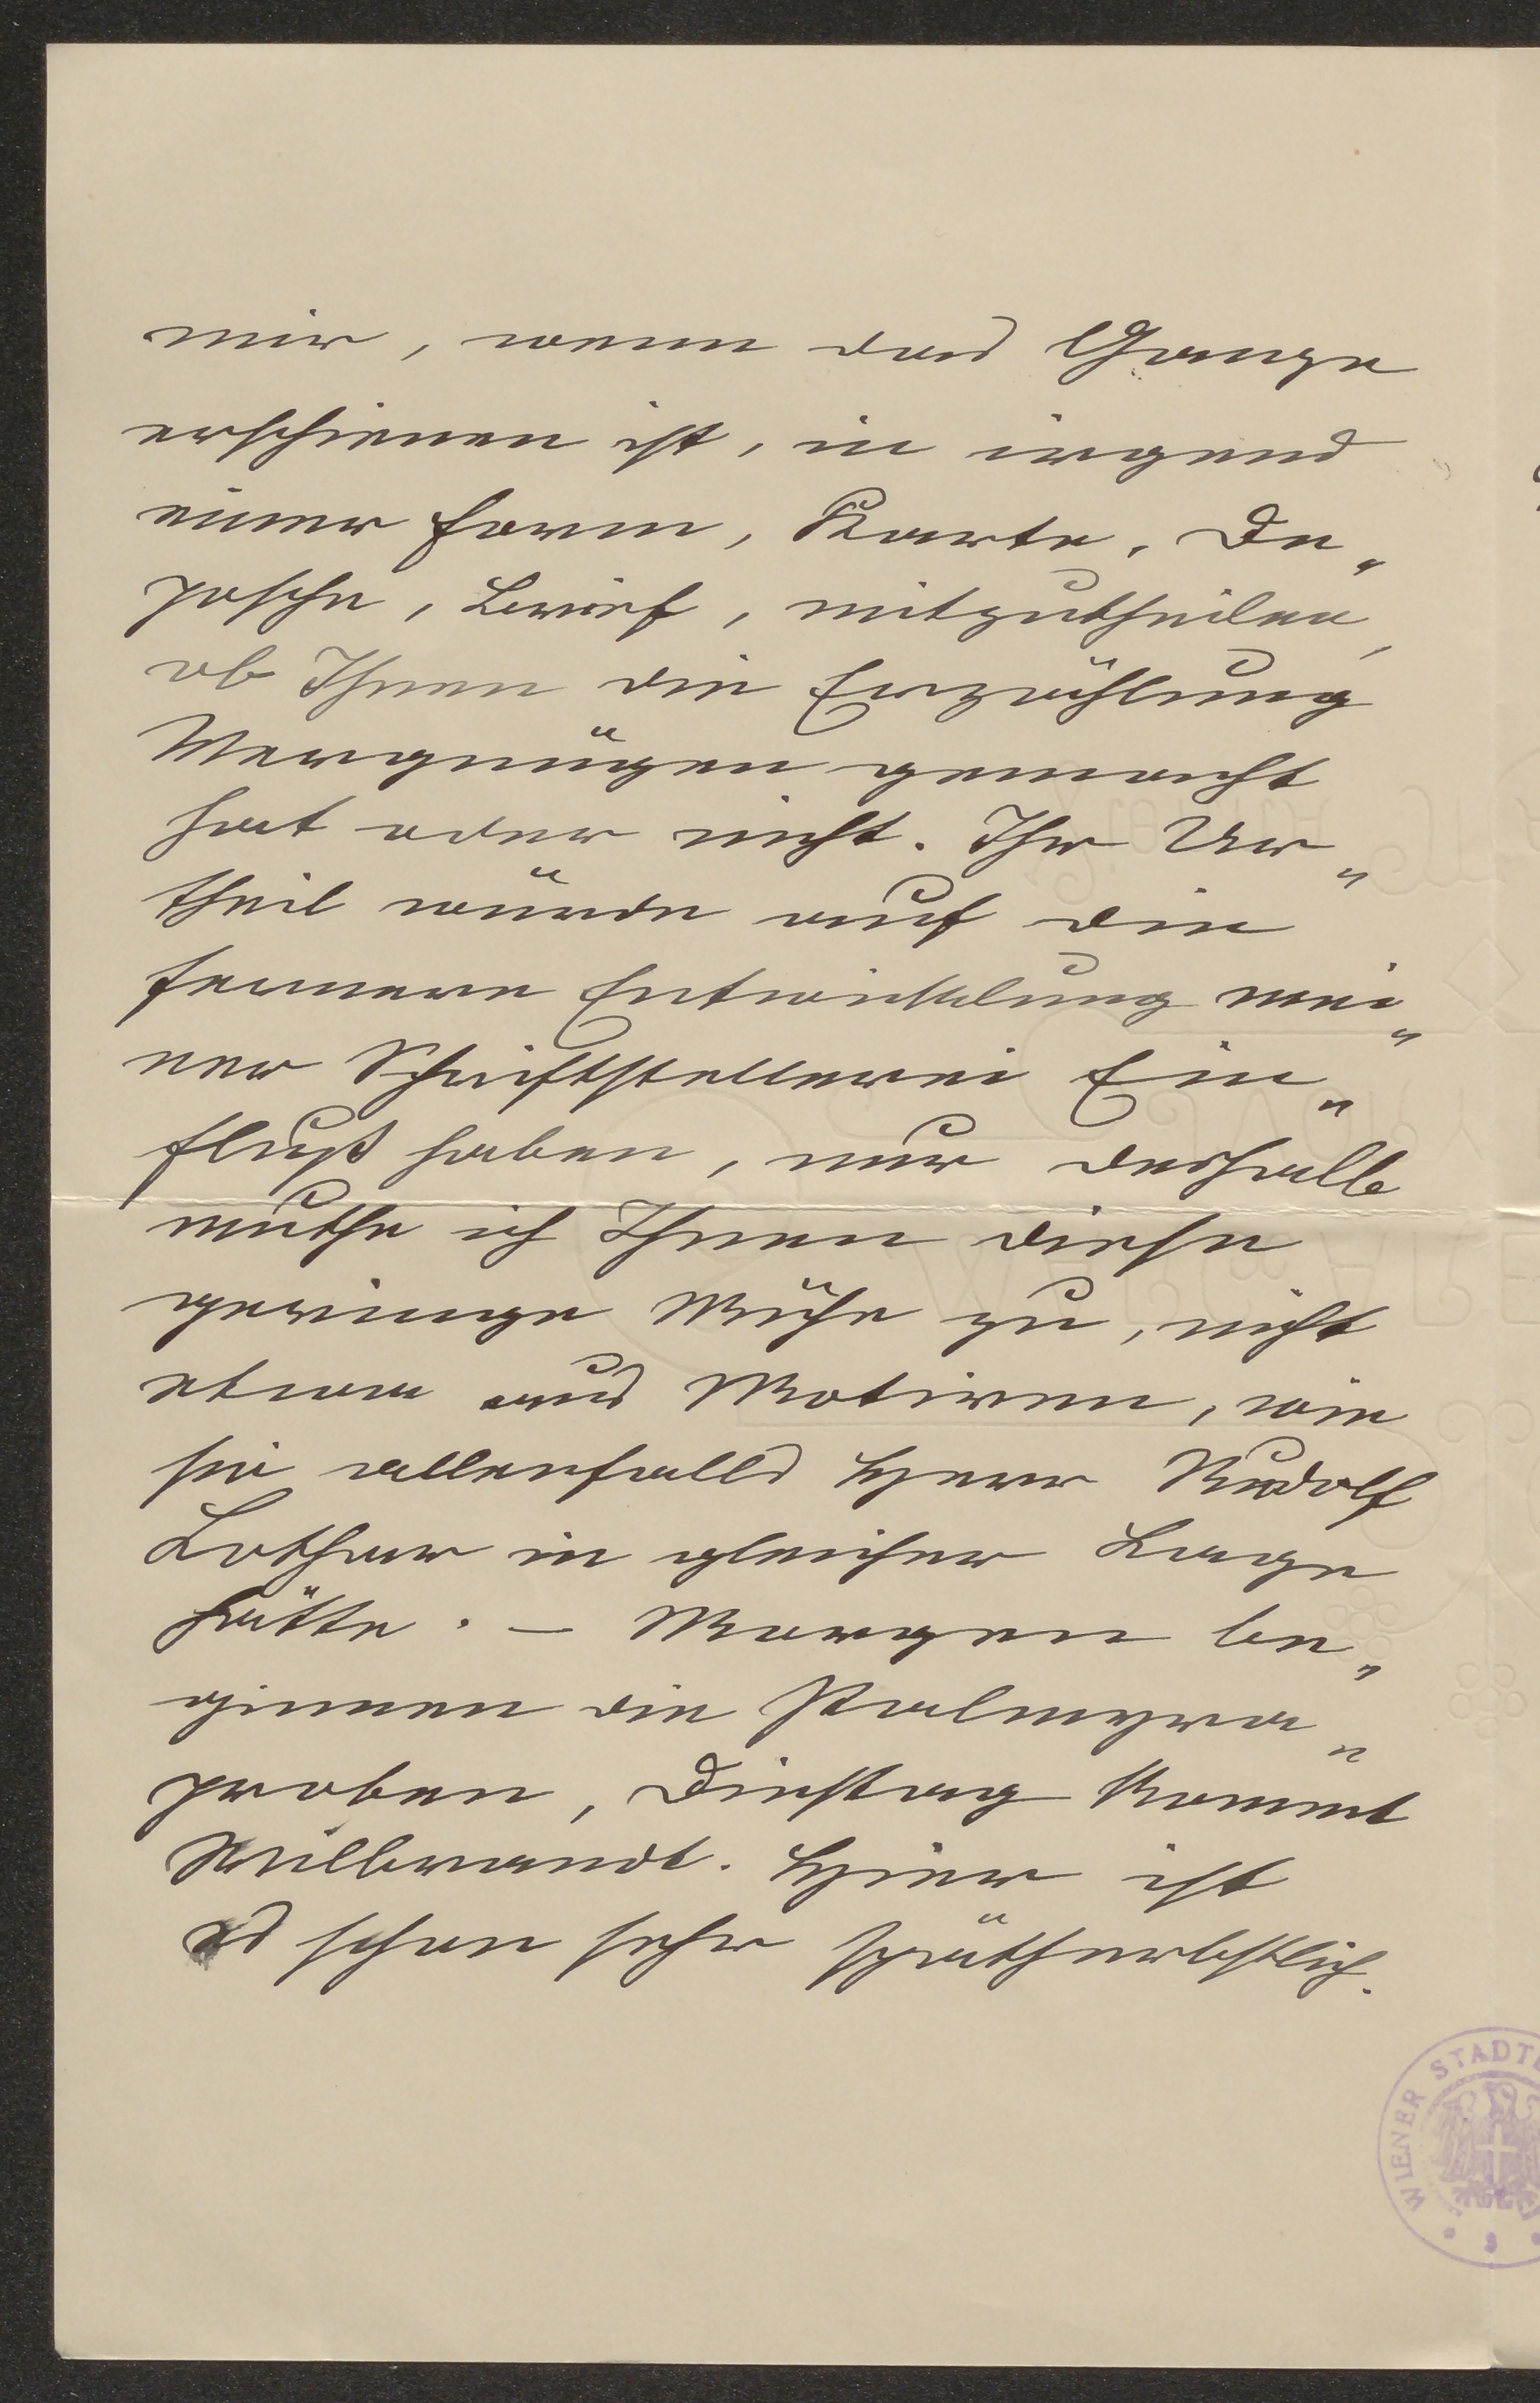 mir, wenn das Ganze
erschienen ist, in irgend
einer Form, Karte, De„
pesche, Brief, mitzutheilen,
ob Ihnen die Erzählung
Vergnügen gemacht
hat oder nicht. Ihr Ur„
theil würde auf die
fernere Entwickelung mei„
ner Schriftstellerei Ein„
fluß haben, nur deshalb
muthe ich Ihnen diese
geringe Mühe zu, nicht
etwa aus Motiven, wie
sie allenfalls Herr Rudolf
Lothar in gleicher Lage
hätte. – Morgen be„
ginnen die Palmyra„
proben, Dienstag kommt
Willbrandt. Hier ist
es schon sehr spätherbstlich.
WIENER STADT